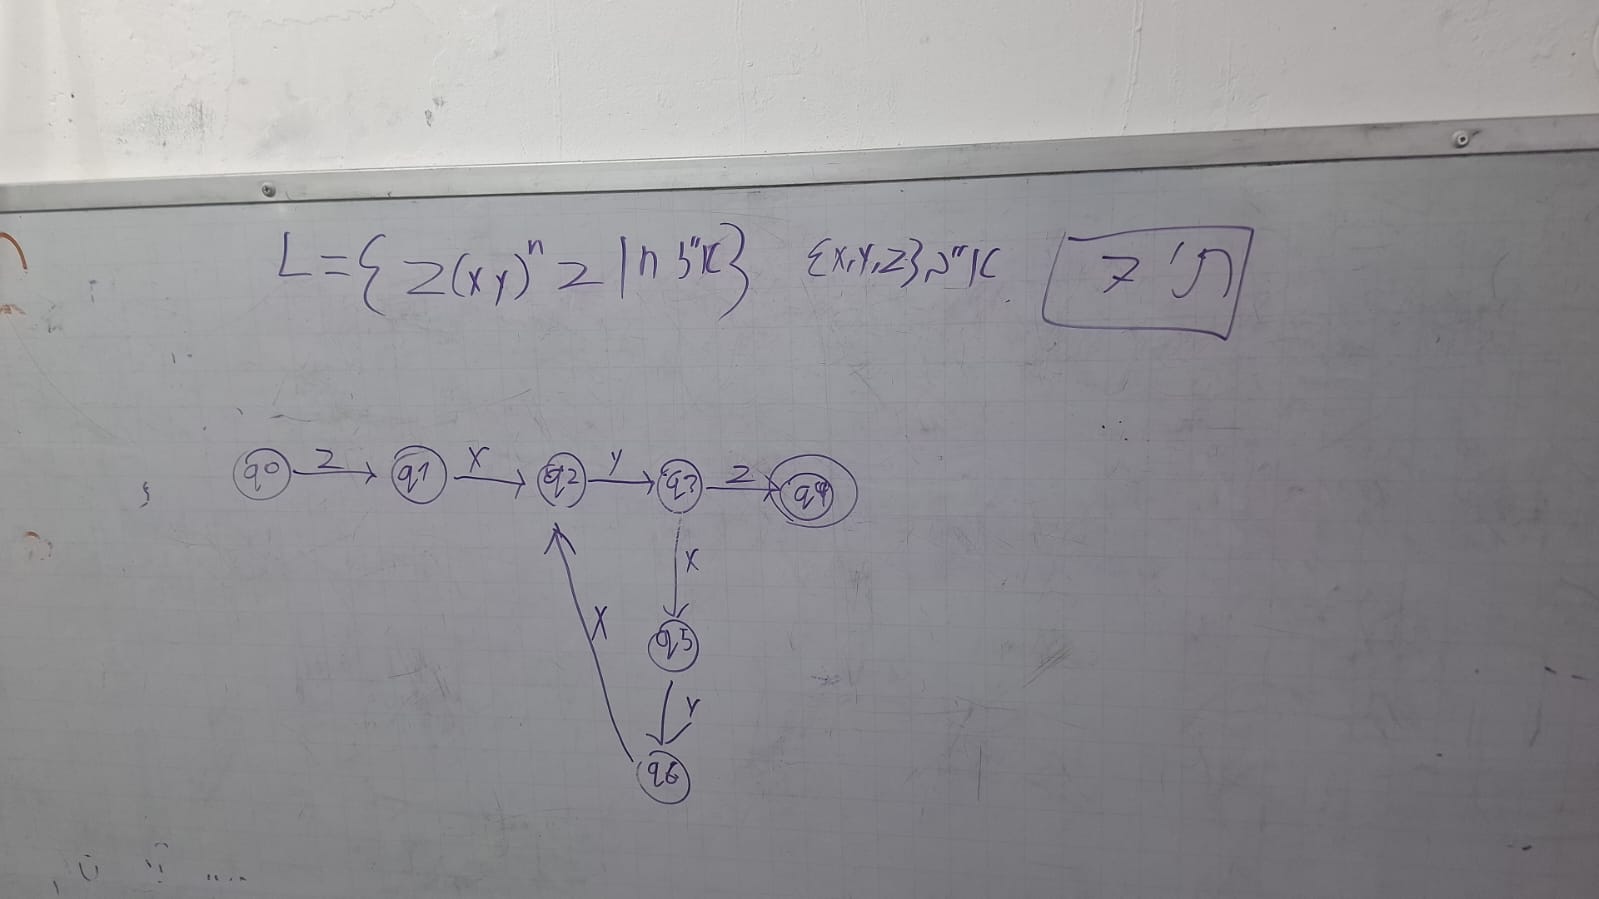 תר' 7 א"ב {x,y,z} L={z(xy)ⁿz | n אי"ז}
q0 z q1 x q2 y q3 z q4
x
x q5
y
q6